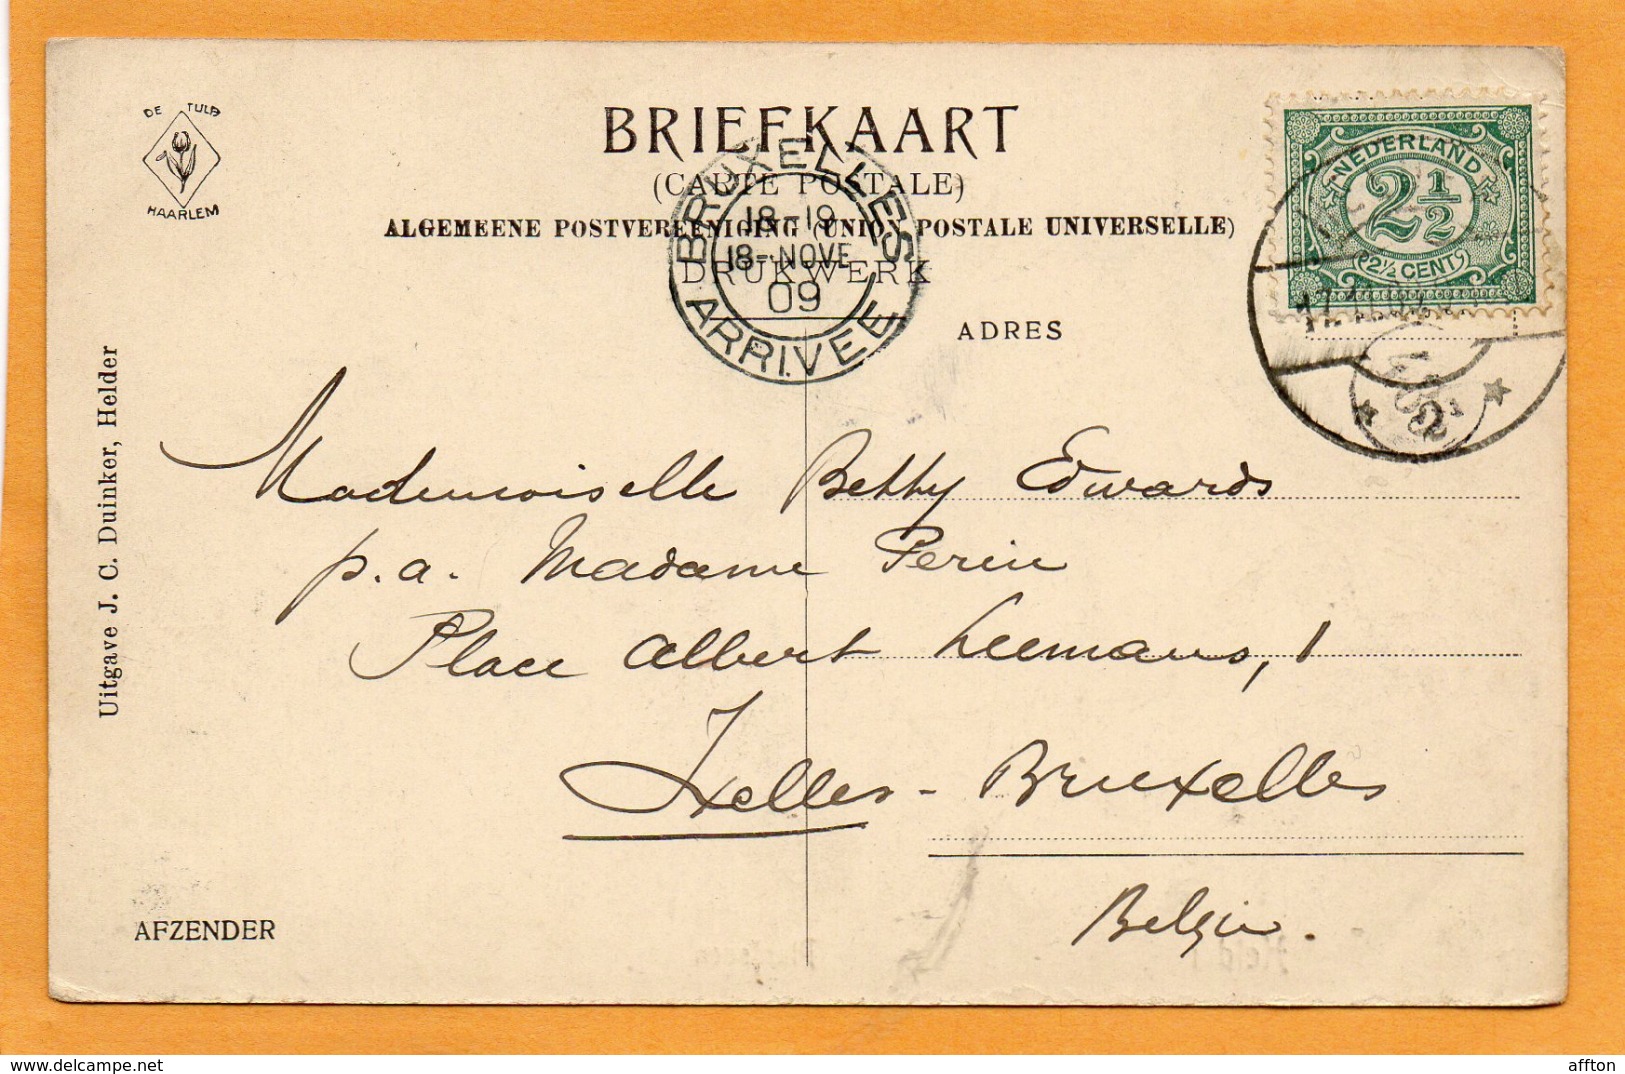 DE TULP
HAARLEM
BRIEFKAART
(CARTE POSTALE)
ALGEMEENE POSTVEREENIGING (UNION POSTALE UNIVERSELLE)
DRUKWERK
BRUXELLES
18-19
18-NOVE
09
ARRIVEE
NEDERLAND
2½
2½ CENT
ADRES
Uitgave J. C. Duinker, Helder
Mademoiselle Betty Edwards
p.a. Madame Perin
Place Albert Leemans, 1
Ixelles - Bruxelles
Belgie.
AFZENDER
affton